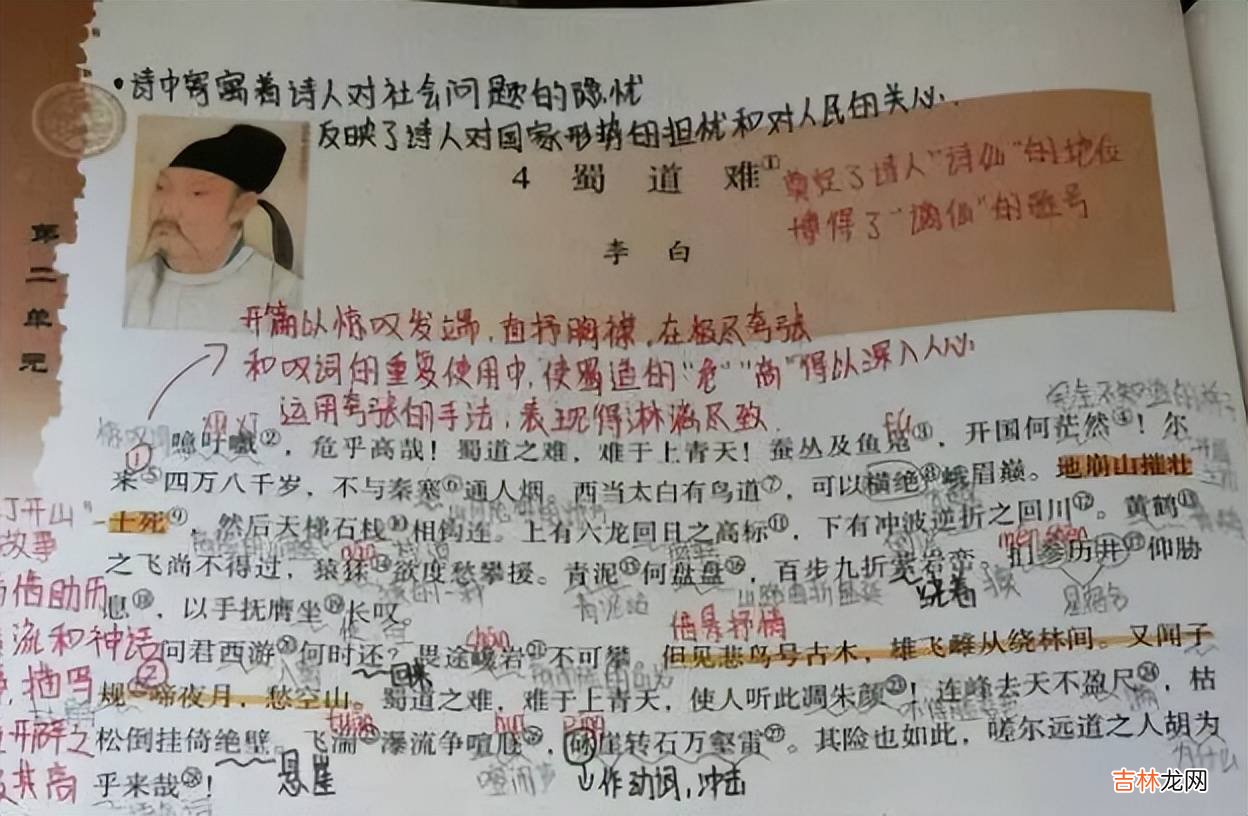 ·诗中寄寓着诗人对社会问题的隐忧
反映了诗人对国家形势的担忧和对人民的关心.
4 蜀道难①
奠定了诗人"诗仙"的地位
博得了"谪仙"的雅号
李白
第二单元
开篇以惊叹发端，直抒胸襟，在极尽夸张
和叹词的重复使用中，使蜀道的"危""高"得以深入人心
运用夸张的手法，表现得淋漓尽致.
yū xī
fú
①
噫吁嚱②，危乎高哉！蜀道之难，难于上青天！蚕丛及鱼凫③，开国何茫然④！尔
来⑤四万八千岁，不与秦塞⑥通人烟。西当太白有鸟道⑦，可以横绝⑧峨眉巅。地崩山摧壮
丁开山"
士死⑨，然后天梯石栈⑩相钩连。上有六龙回日之高标⑪，下有冲波逆折之回川⑫。黄鹤⑬
故事
náo
mén shēn
之飞尚不得过，猿猱⑭欲度愁攀援。青泥⑮何盘盘⑯，百步九折萦岩峦。扪参历井⑰仰胁
借助历
息⑱，以手抚膺坐⑲长叹。
青泥岭
绕着
摸
星宿名
借景抒情
流和神话
chán
问君西游⑳何时还？畏途巉岩㉑不可攀。但见悲鸟号古木，雄飞雌从绕林间。又闻子
②
回来
规㉒啼夜月，愁空山。蜀道之难，难于上青天，使人听此凋朱颜㉓！连峰去天不盈尺㉔，枯
开辟之
tuān
huī
pīng
松倒挂倚绝壁。飞湍㉕瀑流争喧豗㉖，砯崖转石万壑雷㉗。其险也如此，嗟尔远道之人胡为
共高
乎来哉㉘！
悬崖
喧闹声
作动词，冲击
为什么
吉林龙网